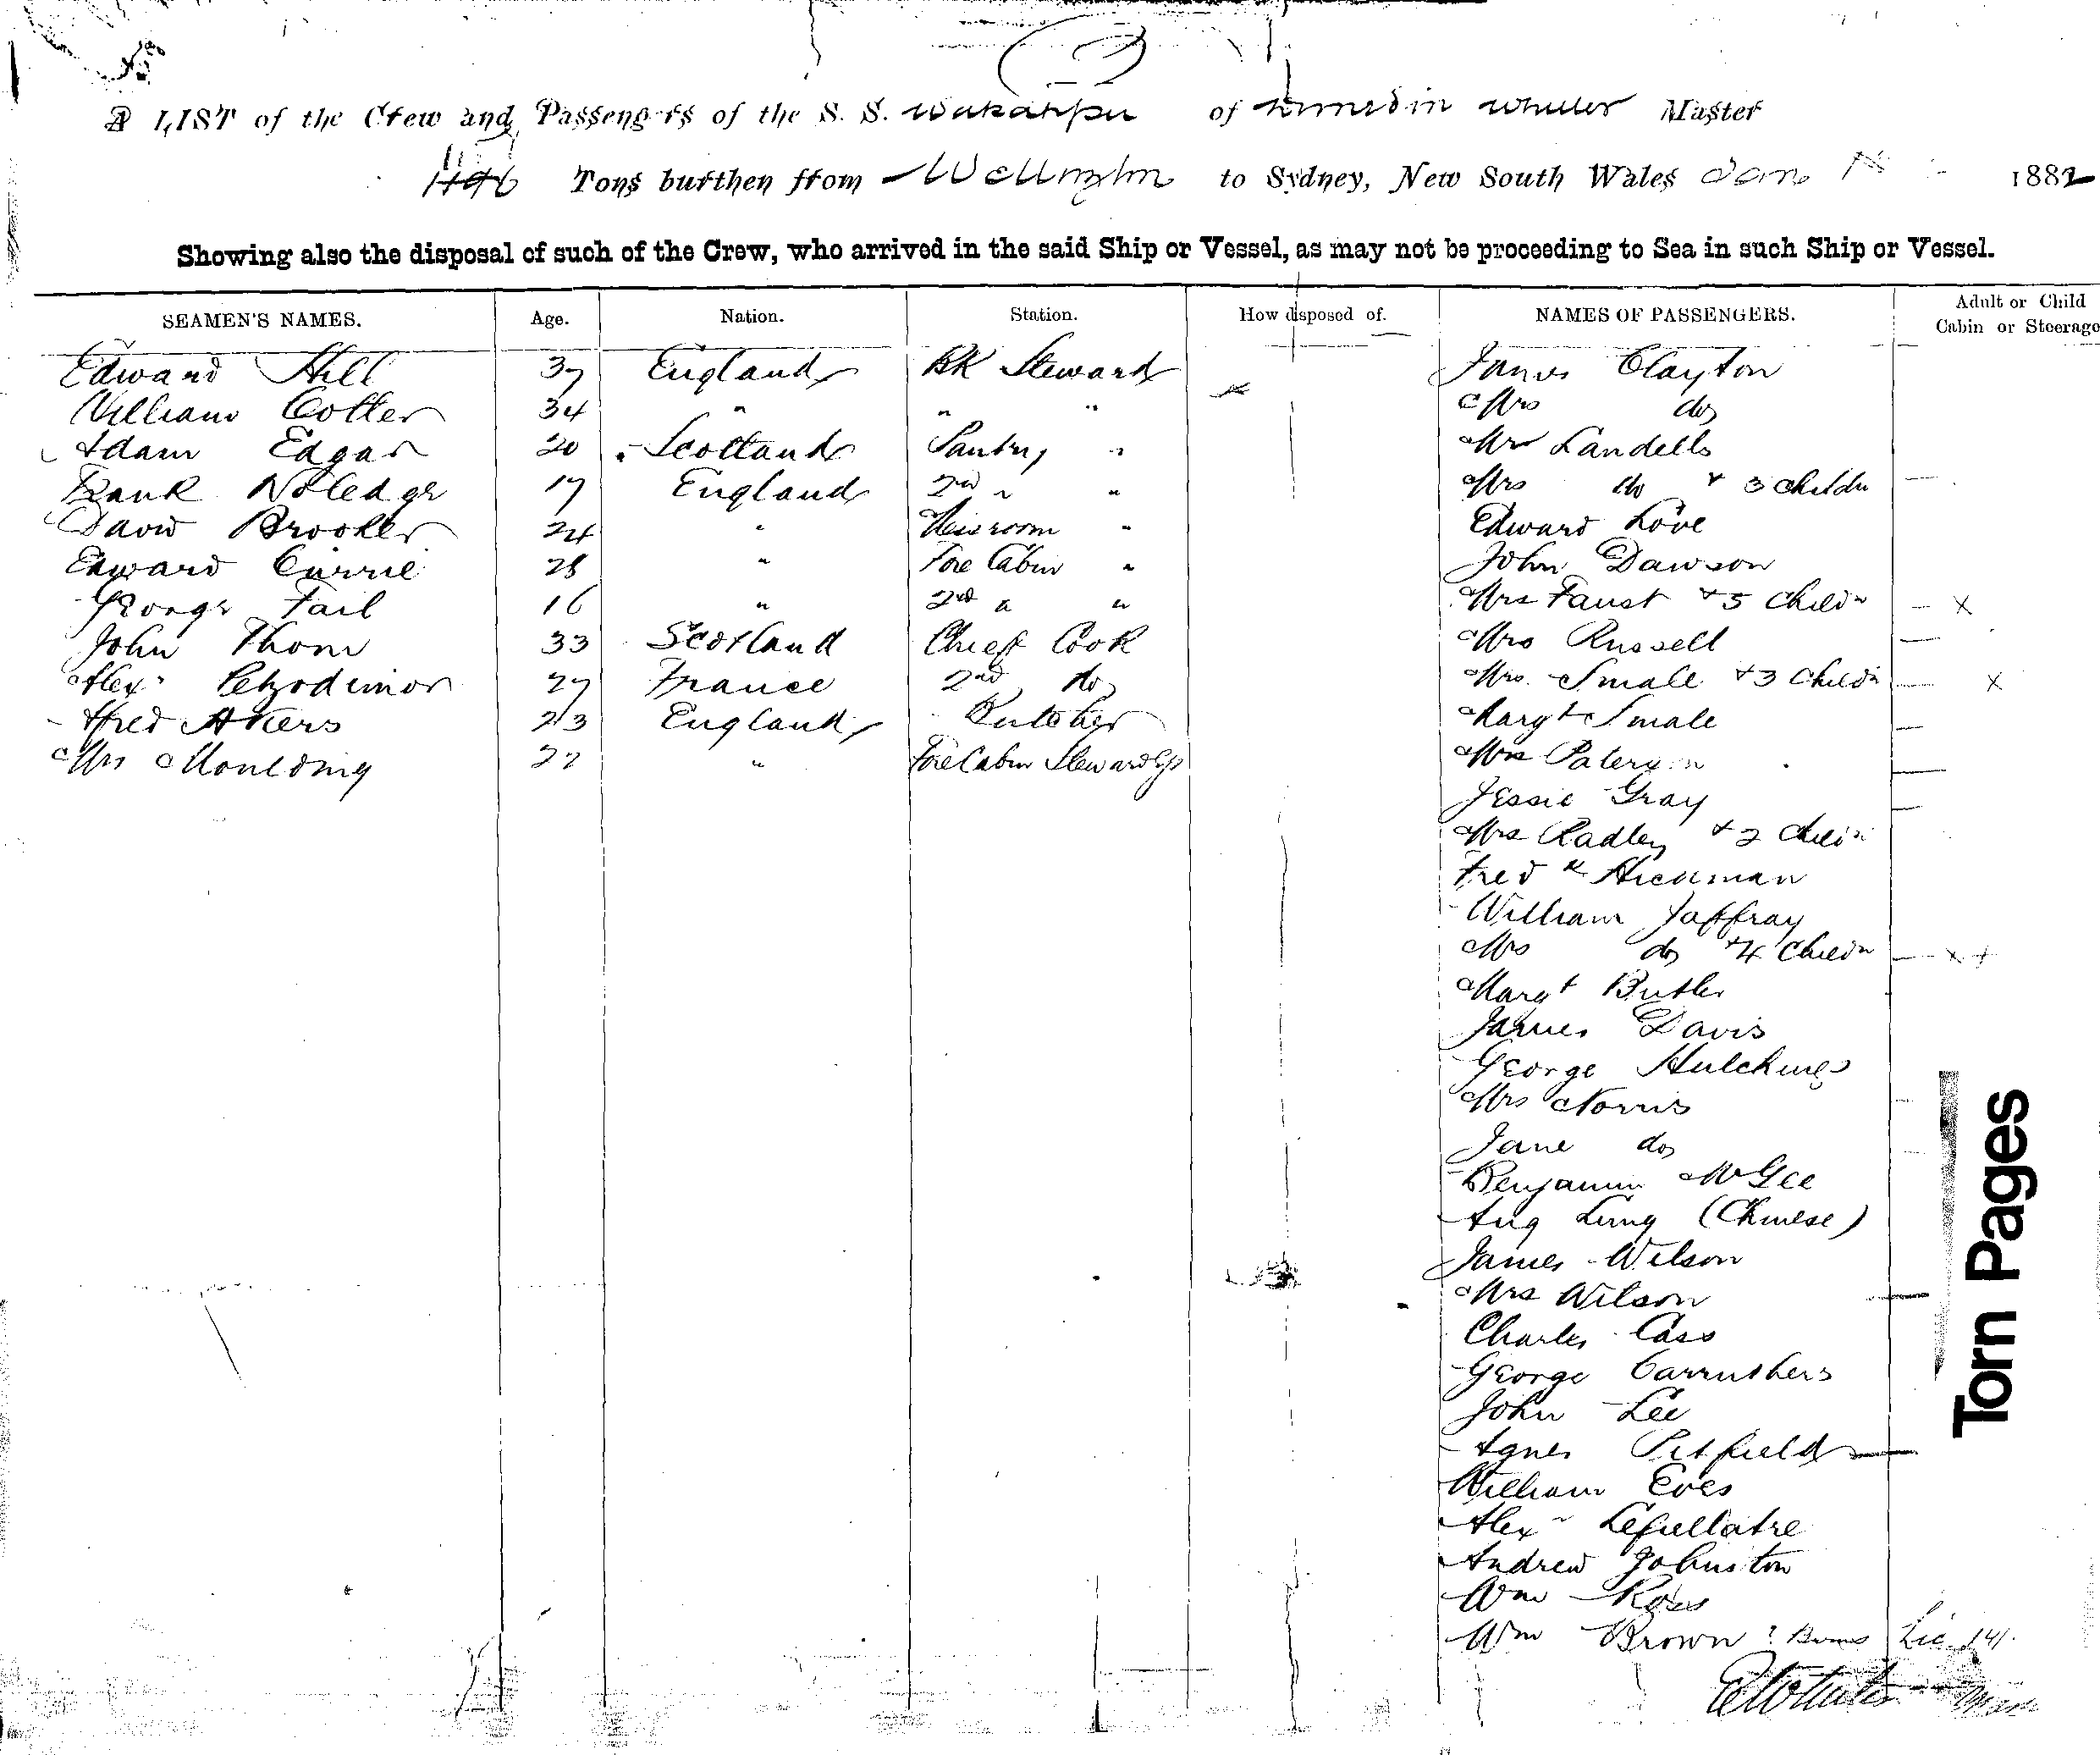 A LIST of the Crew and Passengers of the S. S. Wakatipu of Dunedin Wheeler Master
Tons burthen from Wellington to Sydney, New South Wales Jan 1882
Showing also the disposal of such of the Crew, who arrived in the said Ship or Vessel, as may not be proceeding to Sea in such Ship or Vessel.
SEAMEN'S NAMES. Age. Nation. Station. How disposed of. NAMES OF PASSENGERS. Adult or Child Cabin or Steerage
Edward Hill 37 England BK Steward James Clayton
William Cotter 34 " " " Mrs do
Adam Edgar 20 Scotland Pantry " Mr Landells
Frank Noledge 17 England 2nd " " Mrs do + 3 Childn
David Brooker 24 " Messroom " Edward Love
Edward Currie 28 " Fore Cabin " John Dawson
George Tail 16 " 2nd " " Mrs Faust + 5 Childn x
John Thom 33 Scotland Chief Cook Mrs Russell
Alexr 27 France 2nd do Mrs. Small + 3 Childn x
Alfred Akers 23 England Butcher Margt Small
Mrs Moulding 27 " Fore Cabin Stewardess Mrs Paterson
Jessie Gray
Mrs Radley + 2 Childn
Fredk Hickman
William Jaffray
Mrs do + 4 Childn x +
Margt Butler
James Davis
George Hutchings
Mrs Norris
Jane do
Benjamin McGee
Aug Lung (Chinese)
James Wilson
Mrs Wilson
Charles Cass
George Carruthers
John Lee
Agnes Pitfield
William Eves
Alexr Lefillatre
Andrew Johnston
Wm Ross
Wm Brown
Torn Pages